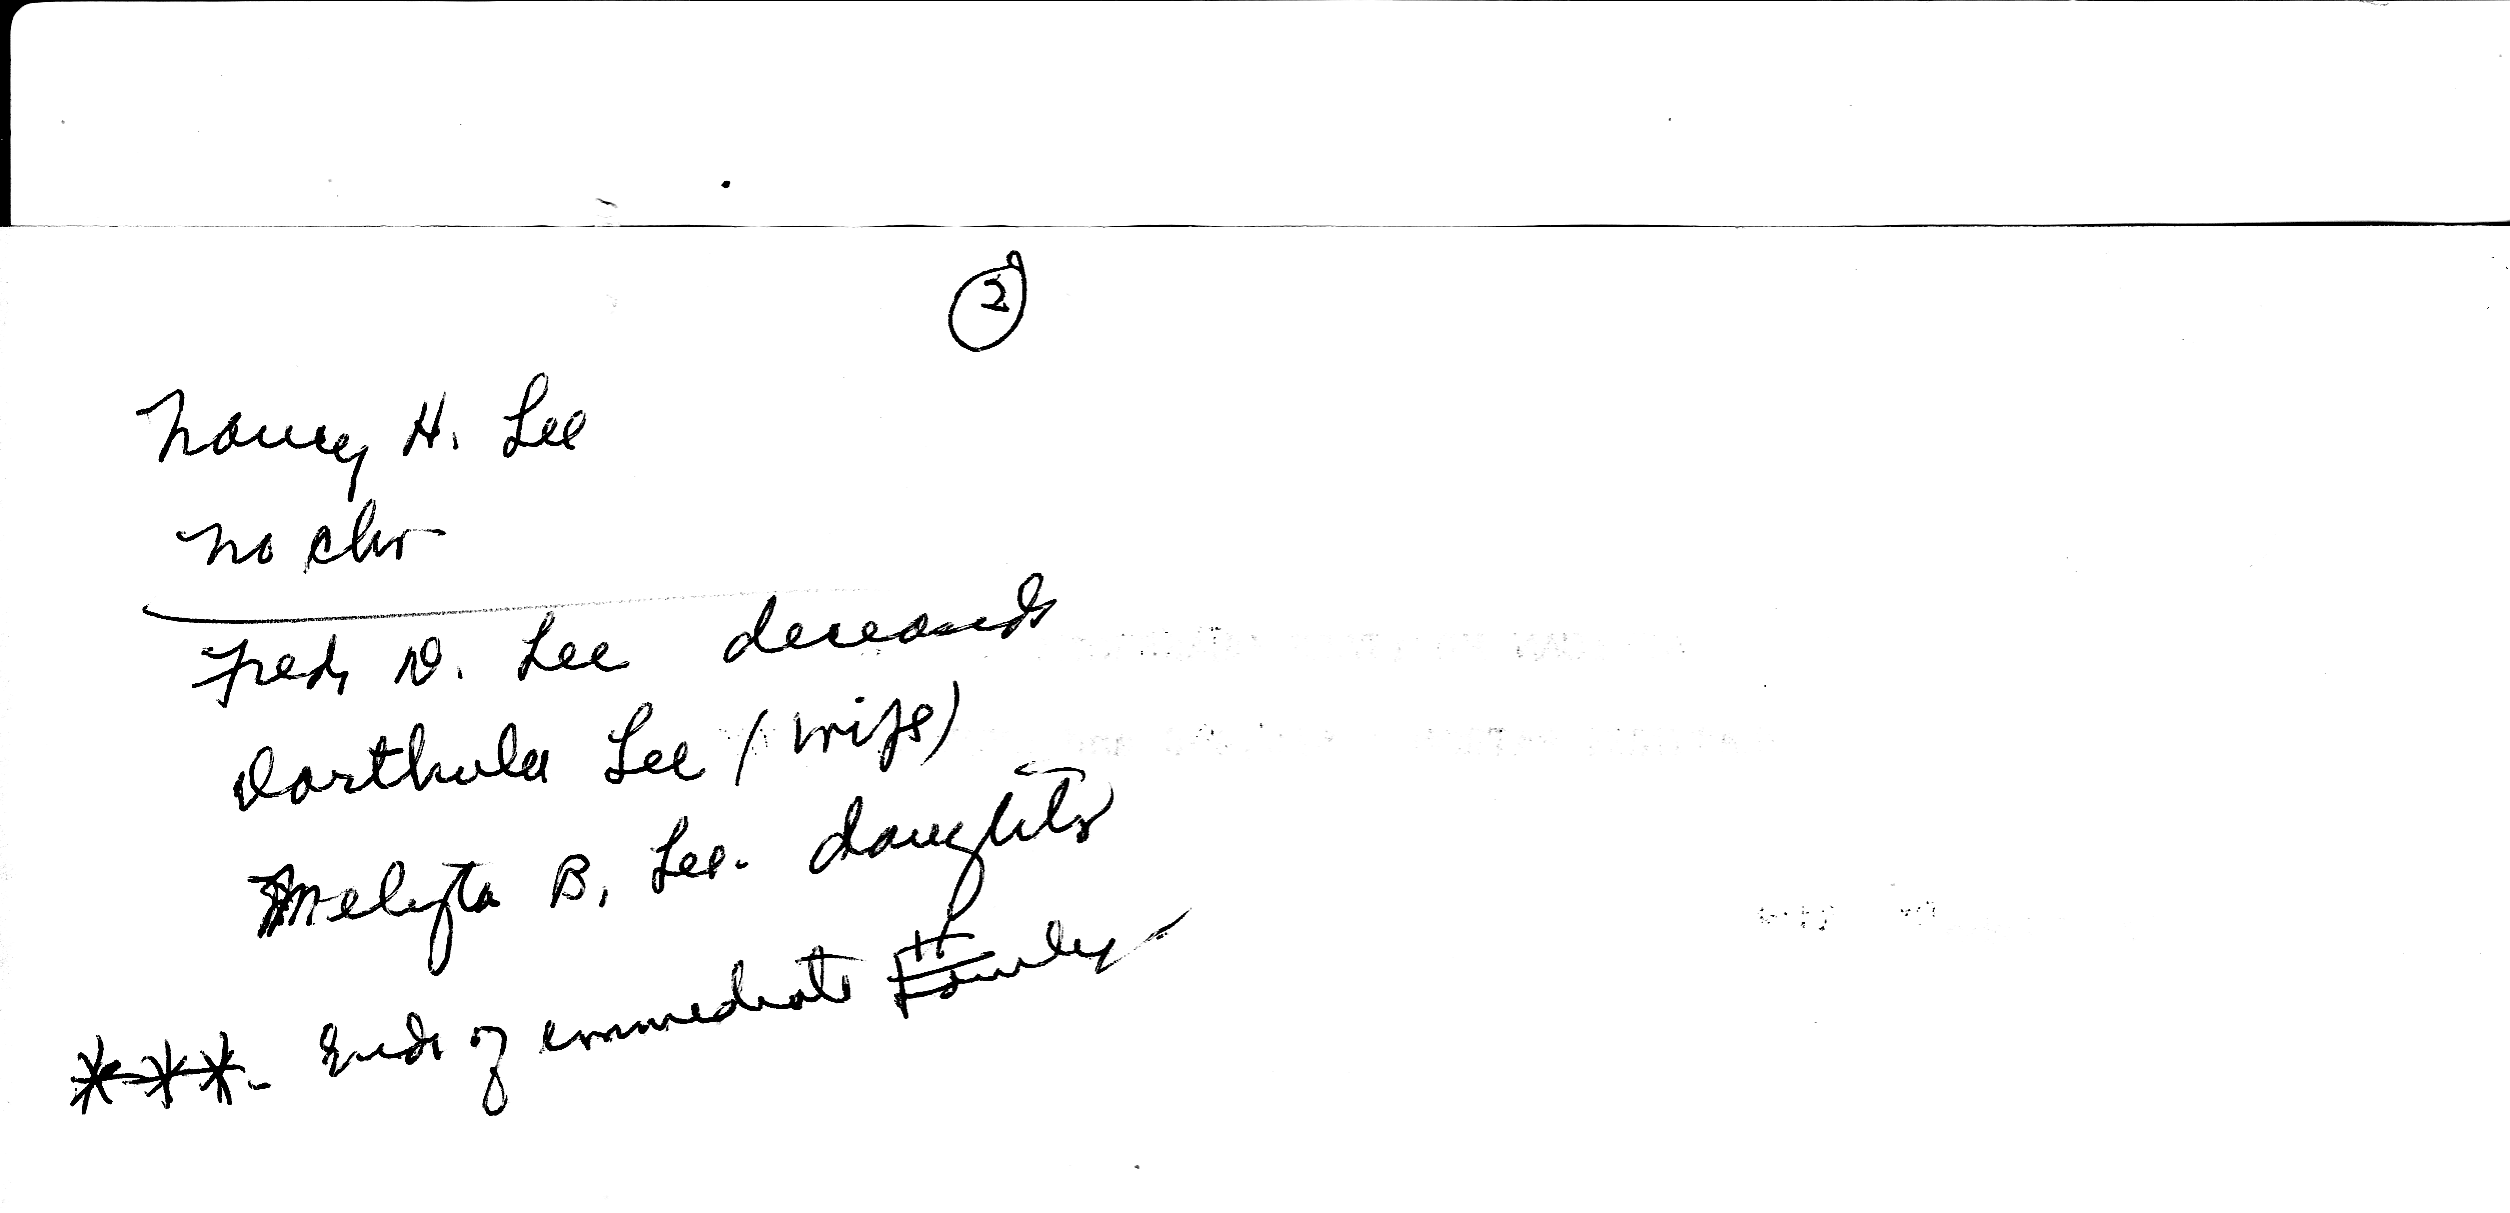 2
Nancy H. Lee
no chr
Fred D. Lee deceased
Dorthula Lee (wife)
B. Lee - daughter
*** - End of immediate Family